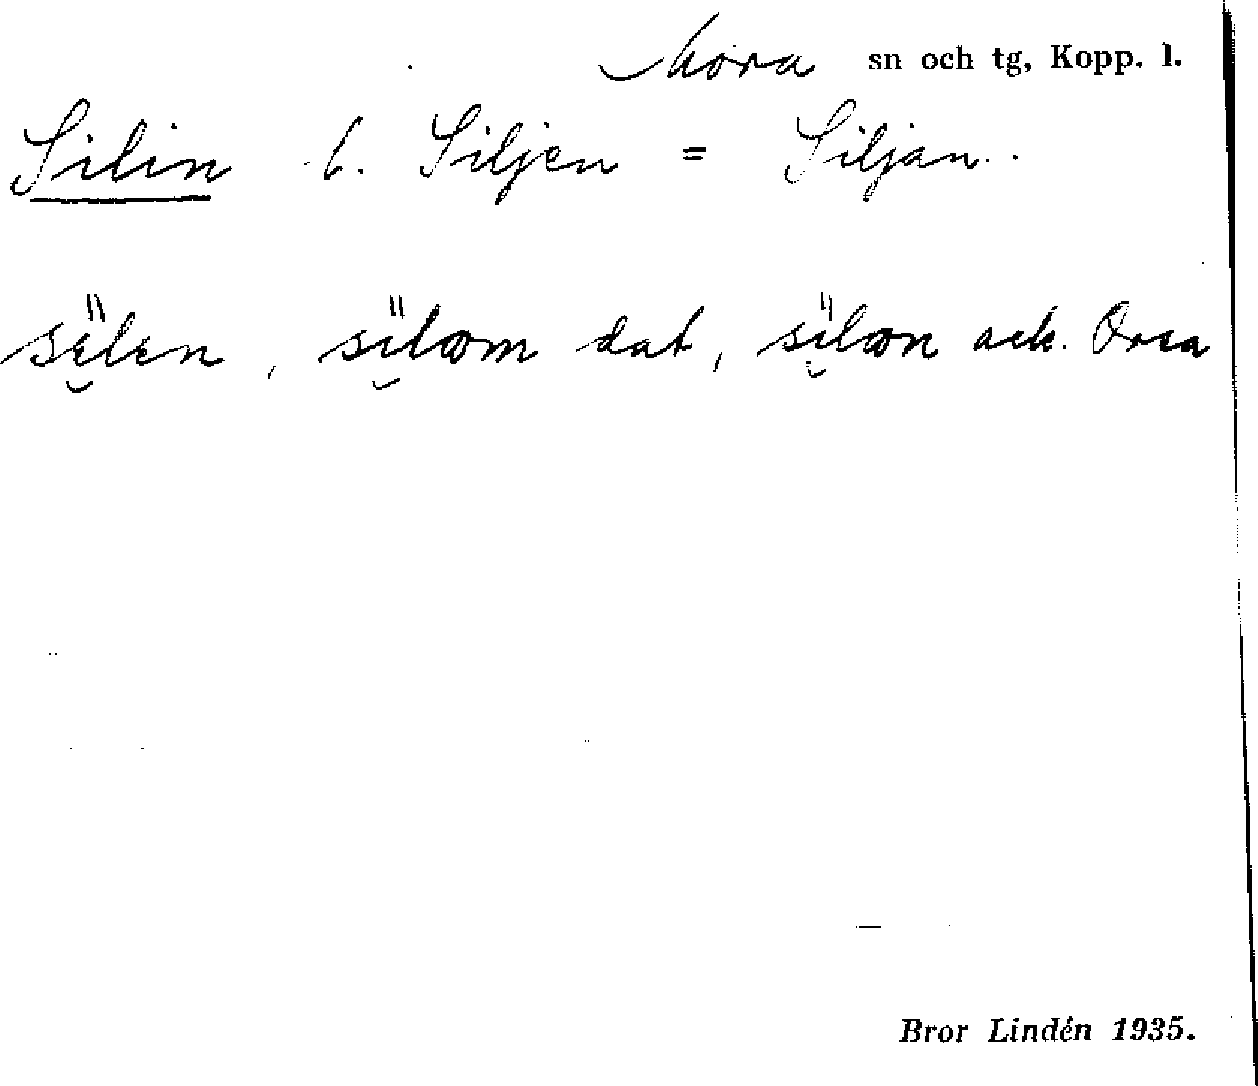 Mora sn och tg, Kopp. l.
Silin b. Siljen = Siljan.
sìlen, sìlæm dat, sìlæn ack. Orsa
Bror Lindén 1935.